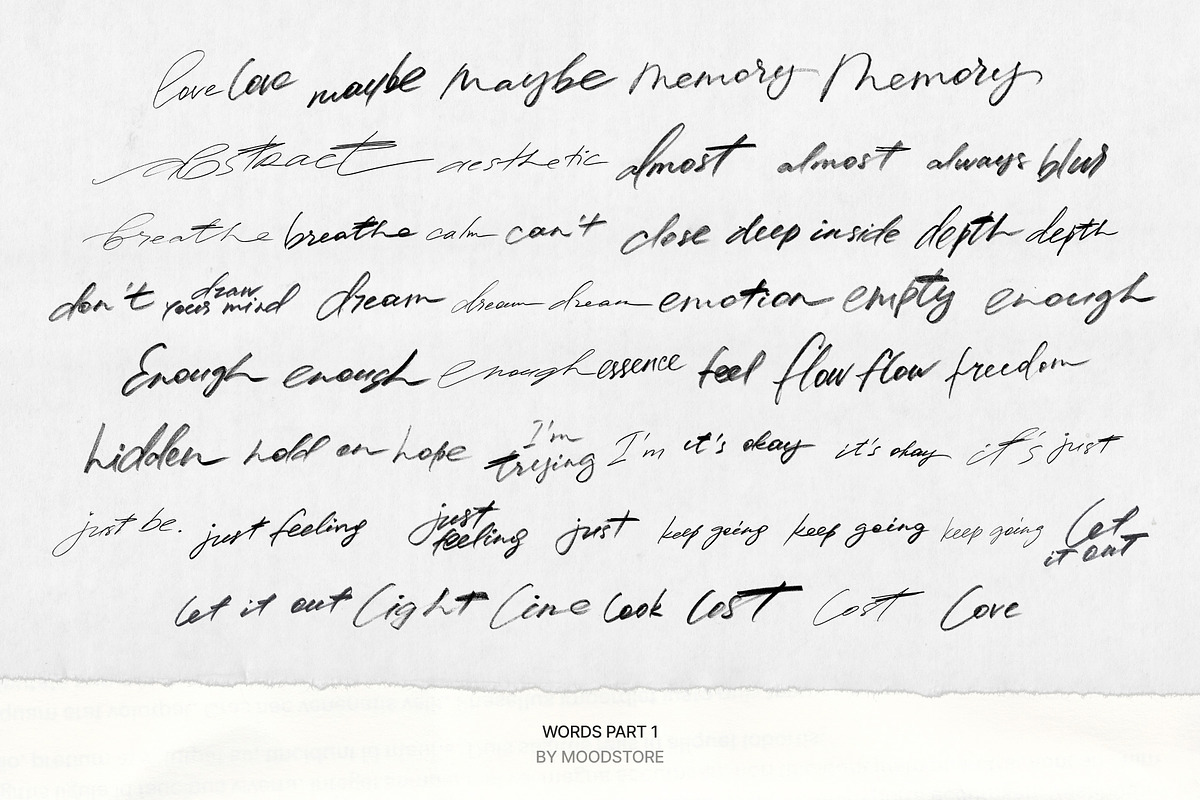 love love maybe maybe memory memory
abstract aesthetic almost almost always blur
breathe breathe calm can't close deep inside depth depth
don't draw your mind dream dream dream emotion empty enough
Enough enough enough essence feel flow flow freedom
hidden hold on hope I'm trying I'm it's okay it's okay it's just
just be. just feeling just feeling just keep going keep going keep going let it out
let it out light line look lost lost love
WORDS PART 1
BY MOODSTORE